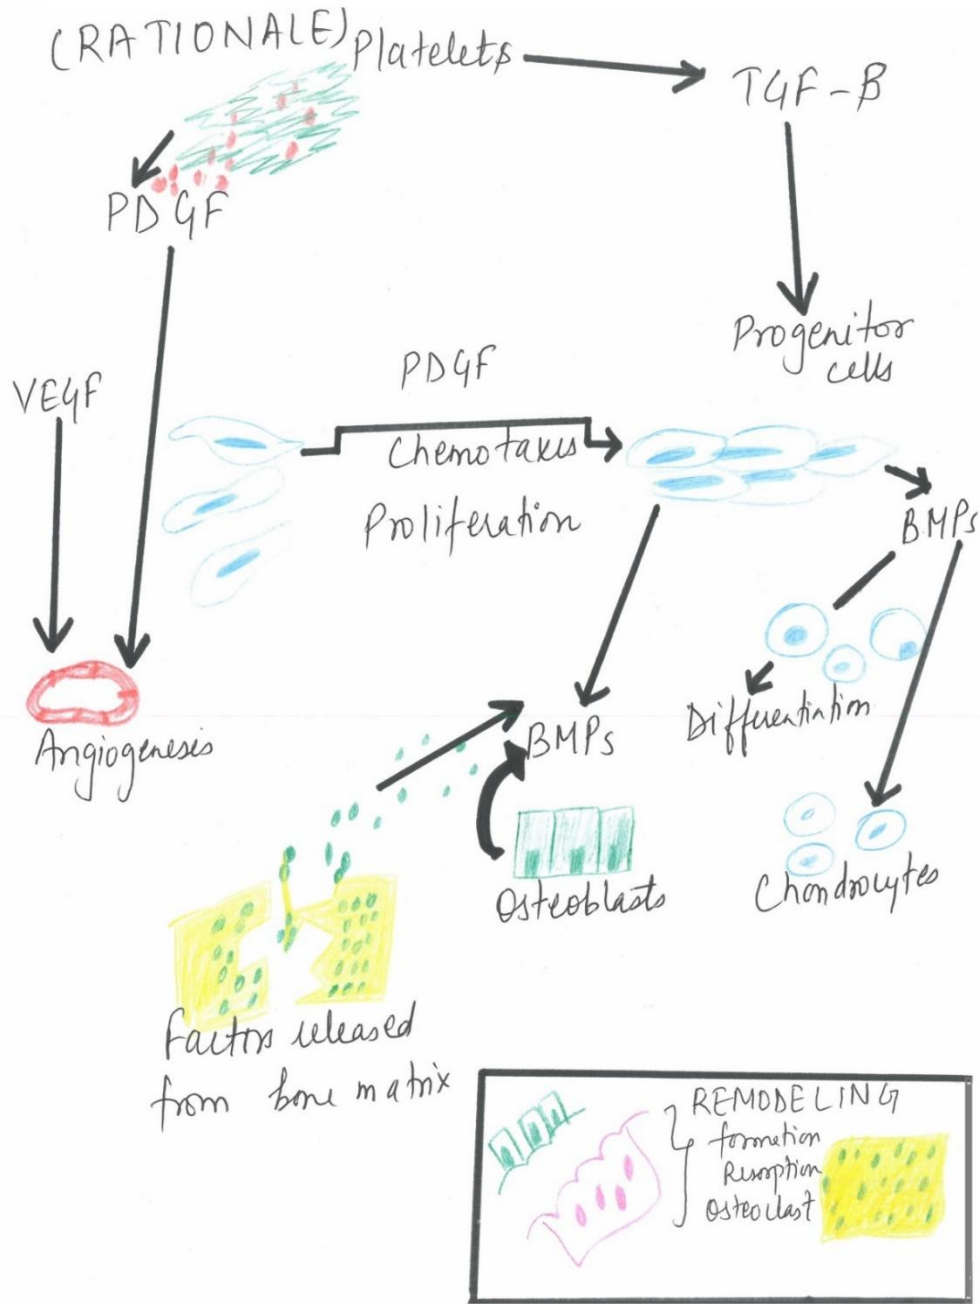 (RATIONALE)
Platelets
TGF-β
PDGF
Progenitor
cells
PDGF
VEGF
Chemotaxis
Proliferation
BMPs
BMPs
Differentiation
Angiogenesis
Osteoblasts
Chondrocytes
Factors released
from bone matrix
REMODELING
formation
Resorption
Osteoclast